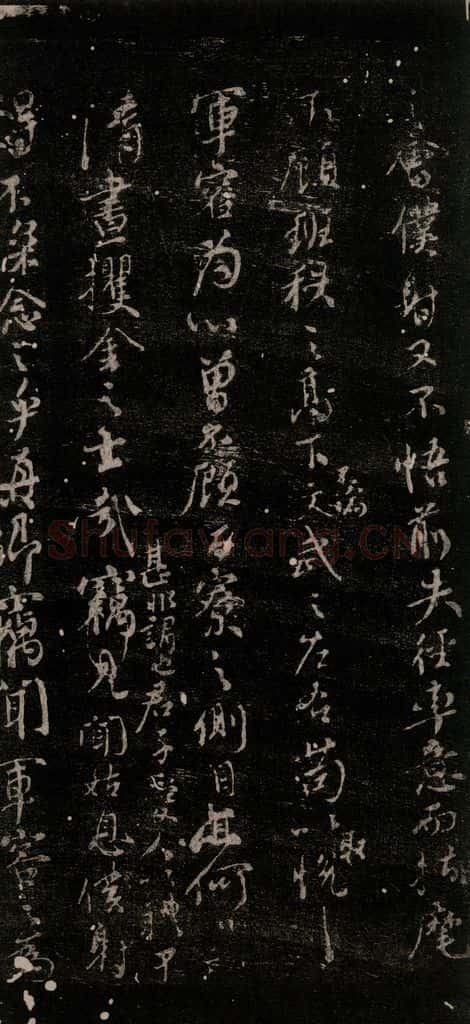 之會僕射又不悟前失徑率意而指麾
不顧班秩之高下不論文武之左右苟以取悅
軍容為心曾不顧百寮之側目亦何異
清晝攫金之士哉
甚非謂也君子愛人以禮
竊見聞姑息僕射
得不深念之乎真卿竊聞軍容之為
Shufawang.CN